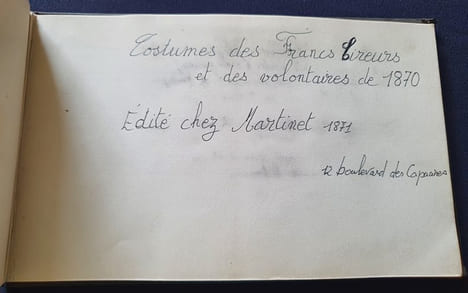 Costumes des Francs tireurs
et des volontaires de 1870
Édité chez Martinet 1871
12 boulevard des Capucines